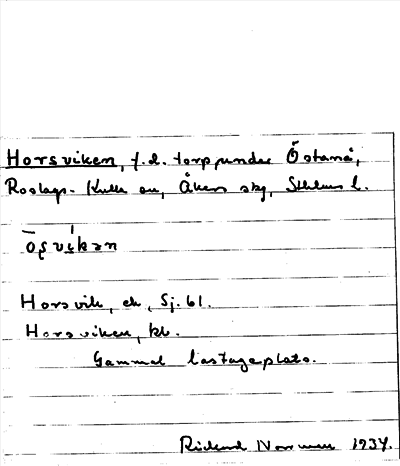 Horsviken, f.d. torp under Östanå,
Roslags-Kulla sn, Åkers skg, Sthlms l.
Horsvik, ek, Sj. bl.
Horsviken, kb.
Gammal lastageplats.
Rickard Norrman 1934.